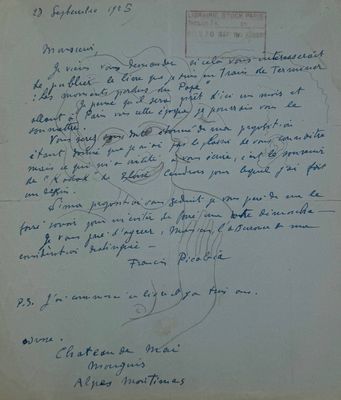 23 Septembre 1925
LIBRAIRIE STOCK PARIS
Monsieur
Je viens vous demander si cela vous intéresserait
de publier le livre que je suis en train de terminer
: Les moments perdus du Pape.
Je pense qu'il sera prêt d'ici un mois et
allant à Paris vers cette époque je pourrais vous le
soumettre.
Vous serez sans doute étonné de ma proposition
étant donné que je n'ai pas le plaisir de vous connaître
mais ce qui m'a incité à vous écrire, c'est le souvenir
de "Kodak" de Cendrars pour lequel j'ai fait
un dessin.
Si ma proposition vous séduit je vous prie de me le
faire savoir
Je vous prie d'agréer, Monsieur, l'assurance de ma
considération distinguée —
Francis Picabia
P.S. J'ai commencé ce livre il y a trois ans.
Chateau de Mai
Mougins
Alpes Maritimes